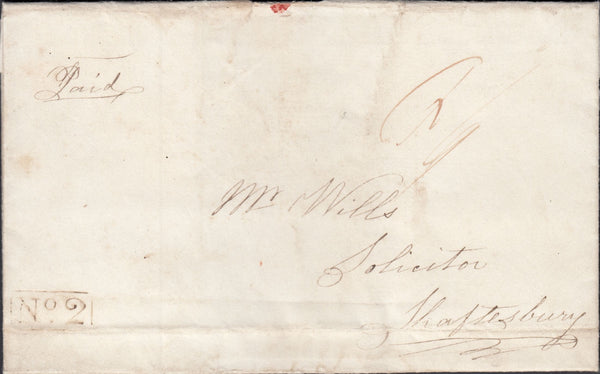 Paid
Mr Wills
Solicitor
Shaftesbury
No 2